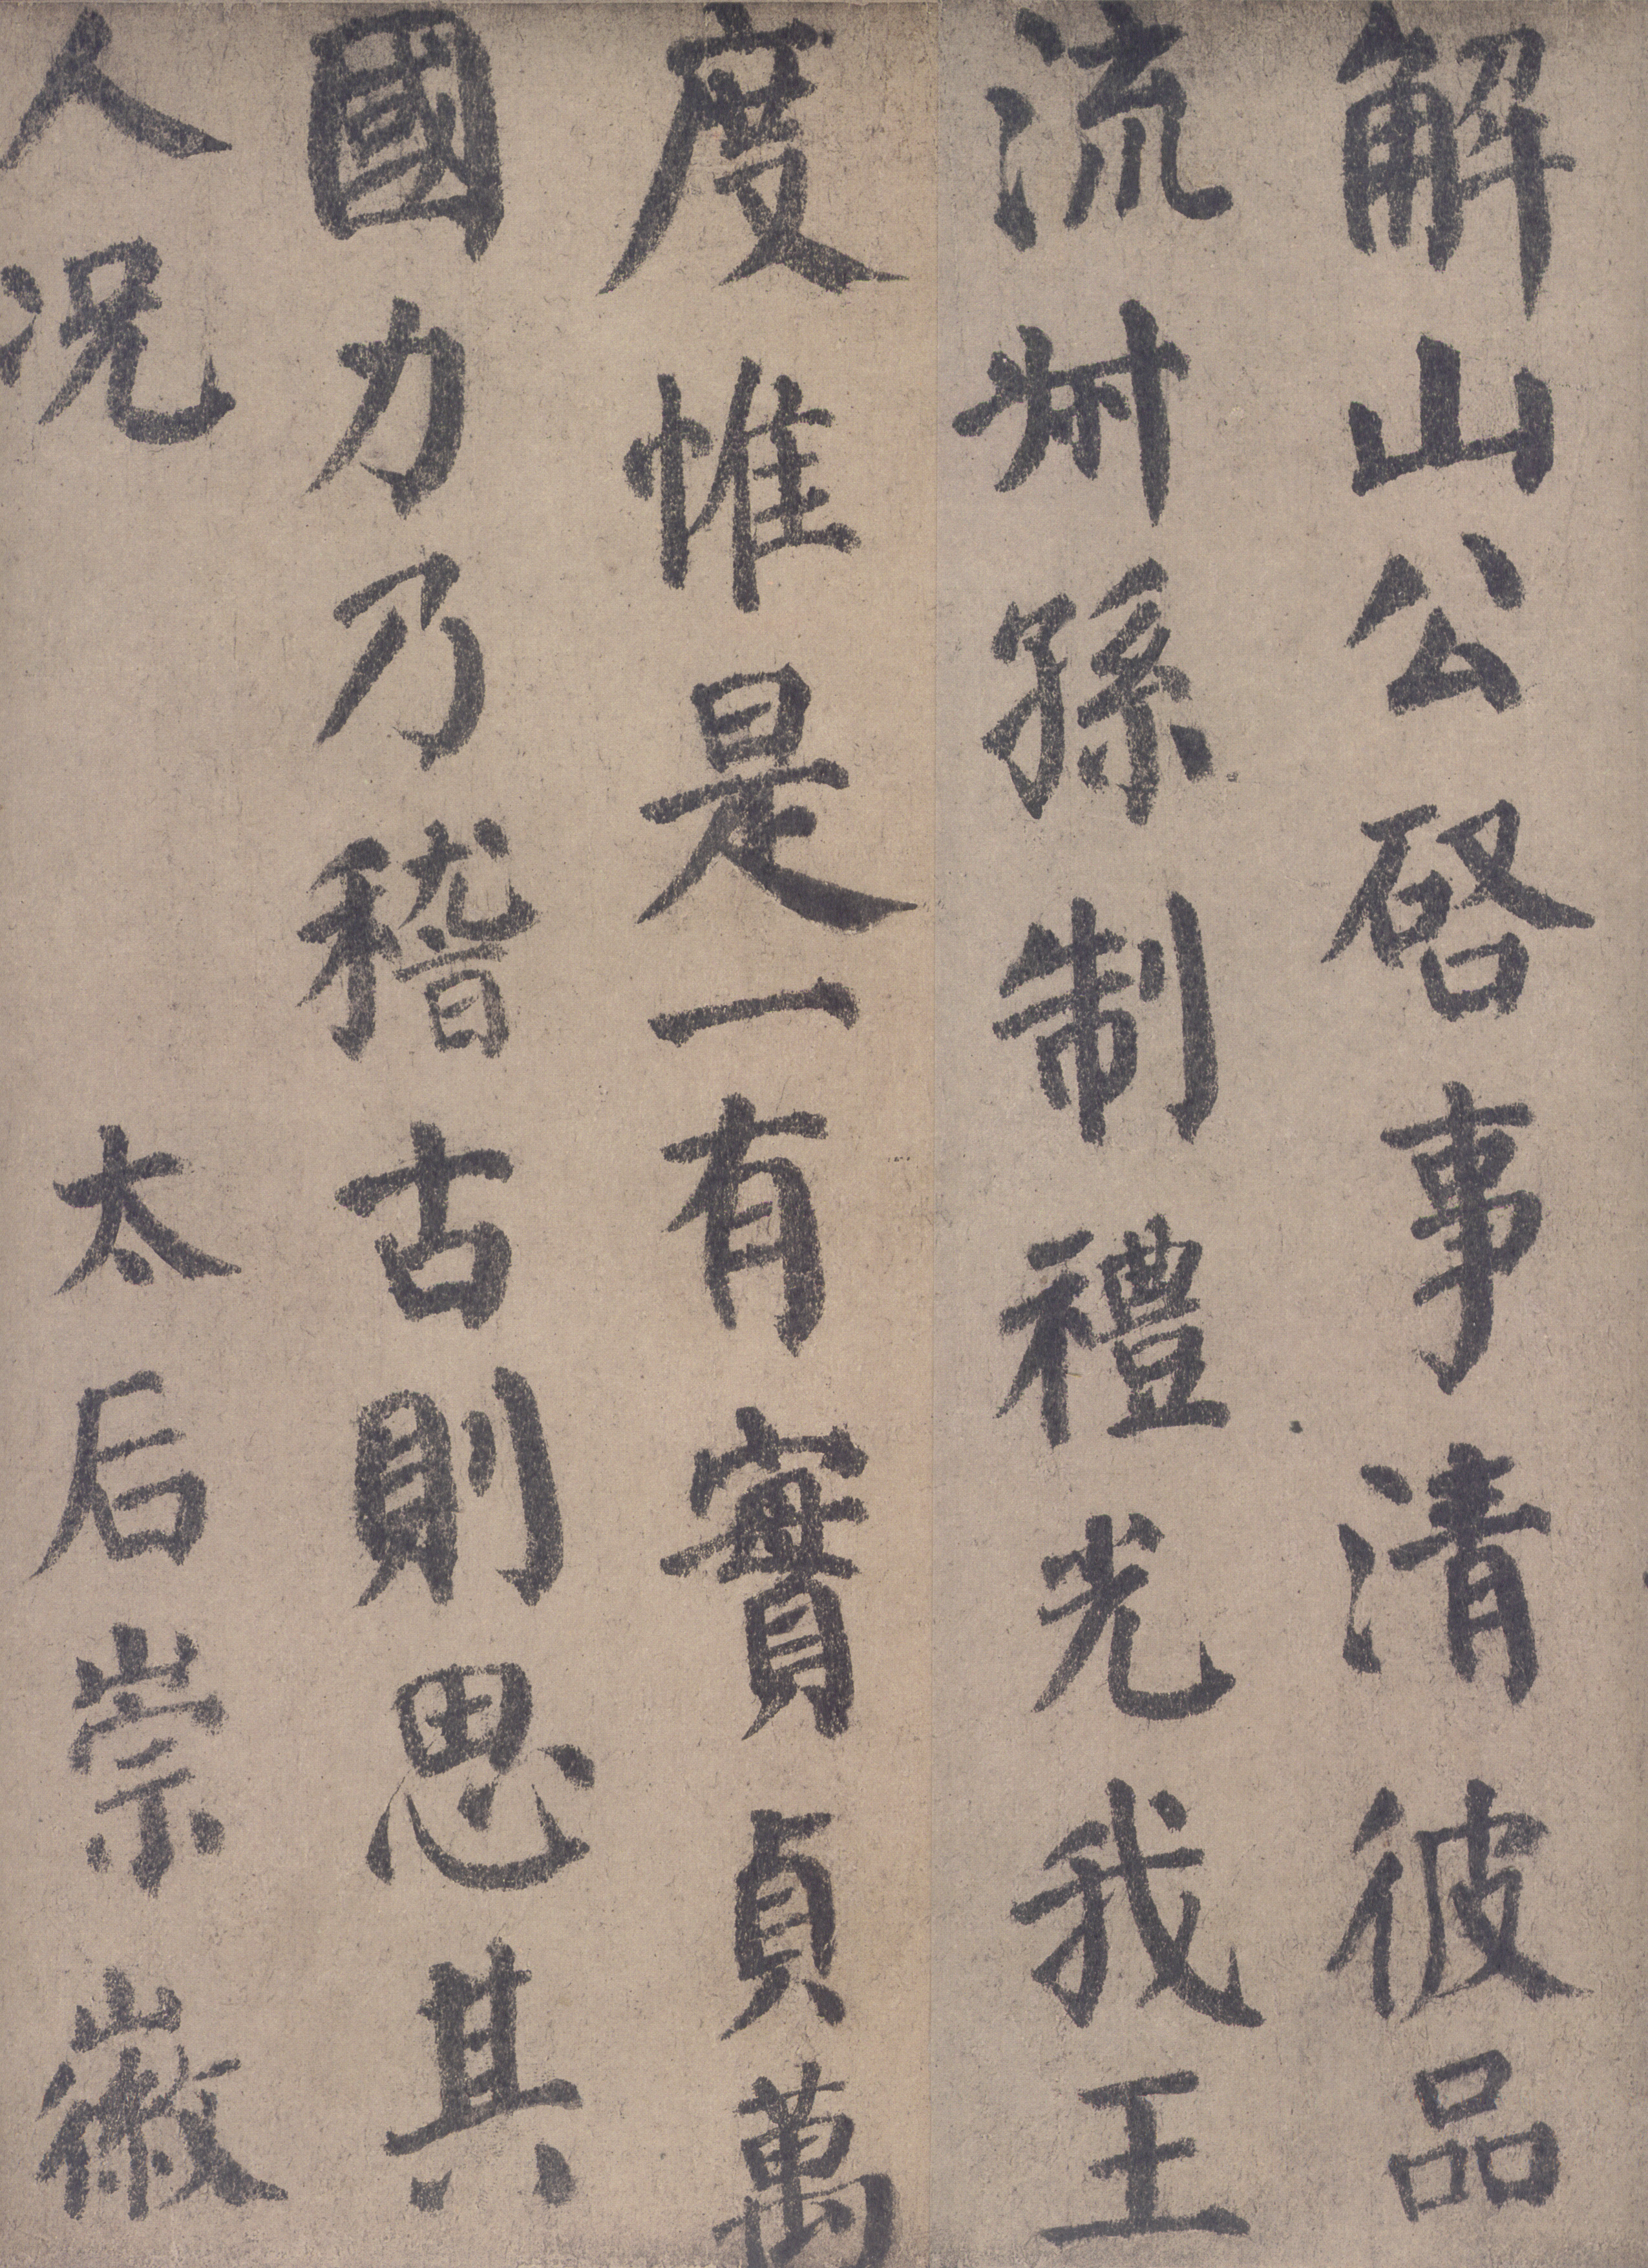 解山公啓事清彼品
流叔孫制禮光我王
度惟是一有實貞萬
國力乃稽古則思其
人况太后崇徽